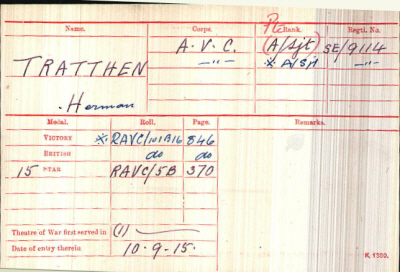 Name. Corps. Rank. Regtl. No.
Pte
TRATTHEN A.V.C. (A/Sjt) SE/9114
—"— * A/Sjt —"—
Herman
Medal. Roll. Page. Remarks.
VICTORY * RAVC/101B16 846
BRITISH do do
15 STAR RAVC/5B 370
Theatre of War first served in (1)
Date of entry therein 10.9.15.
K. 1380.